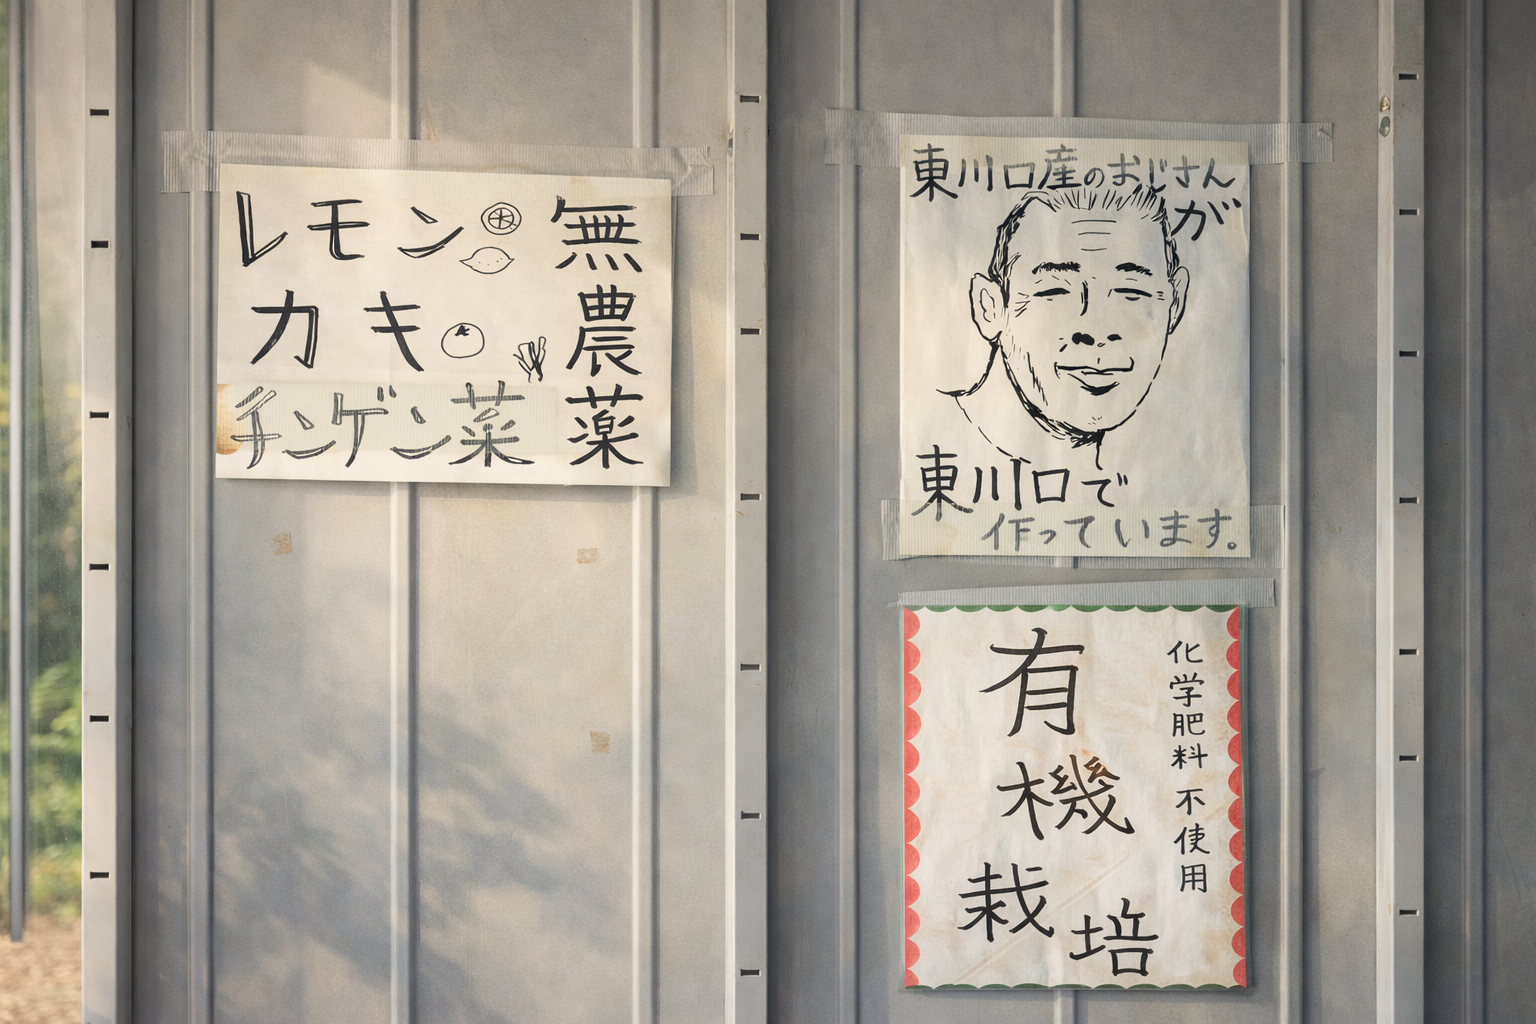 レモン
カキ
チンゲン菜
無農薬
東川口産のおじさん
が
東川口で
作っています。
有機栽培
化学肥料不使用